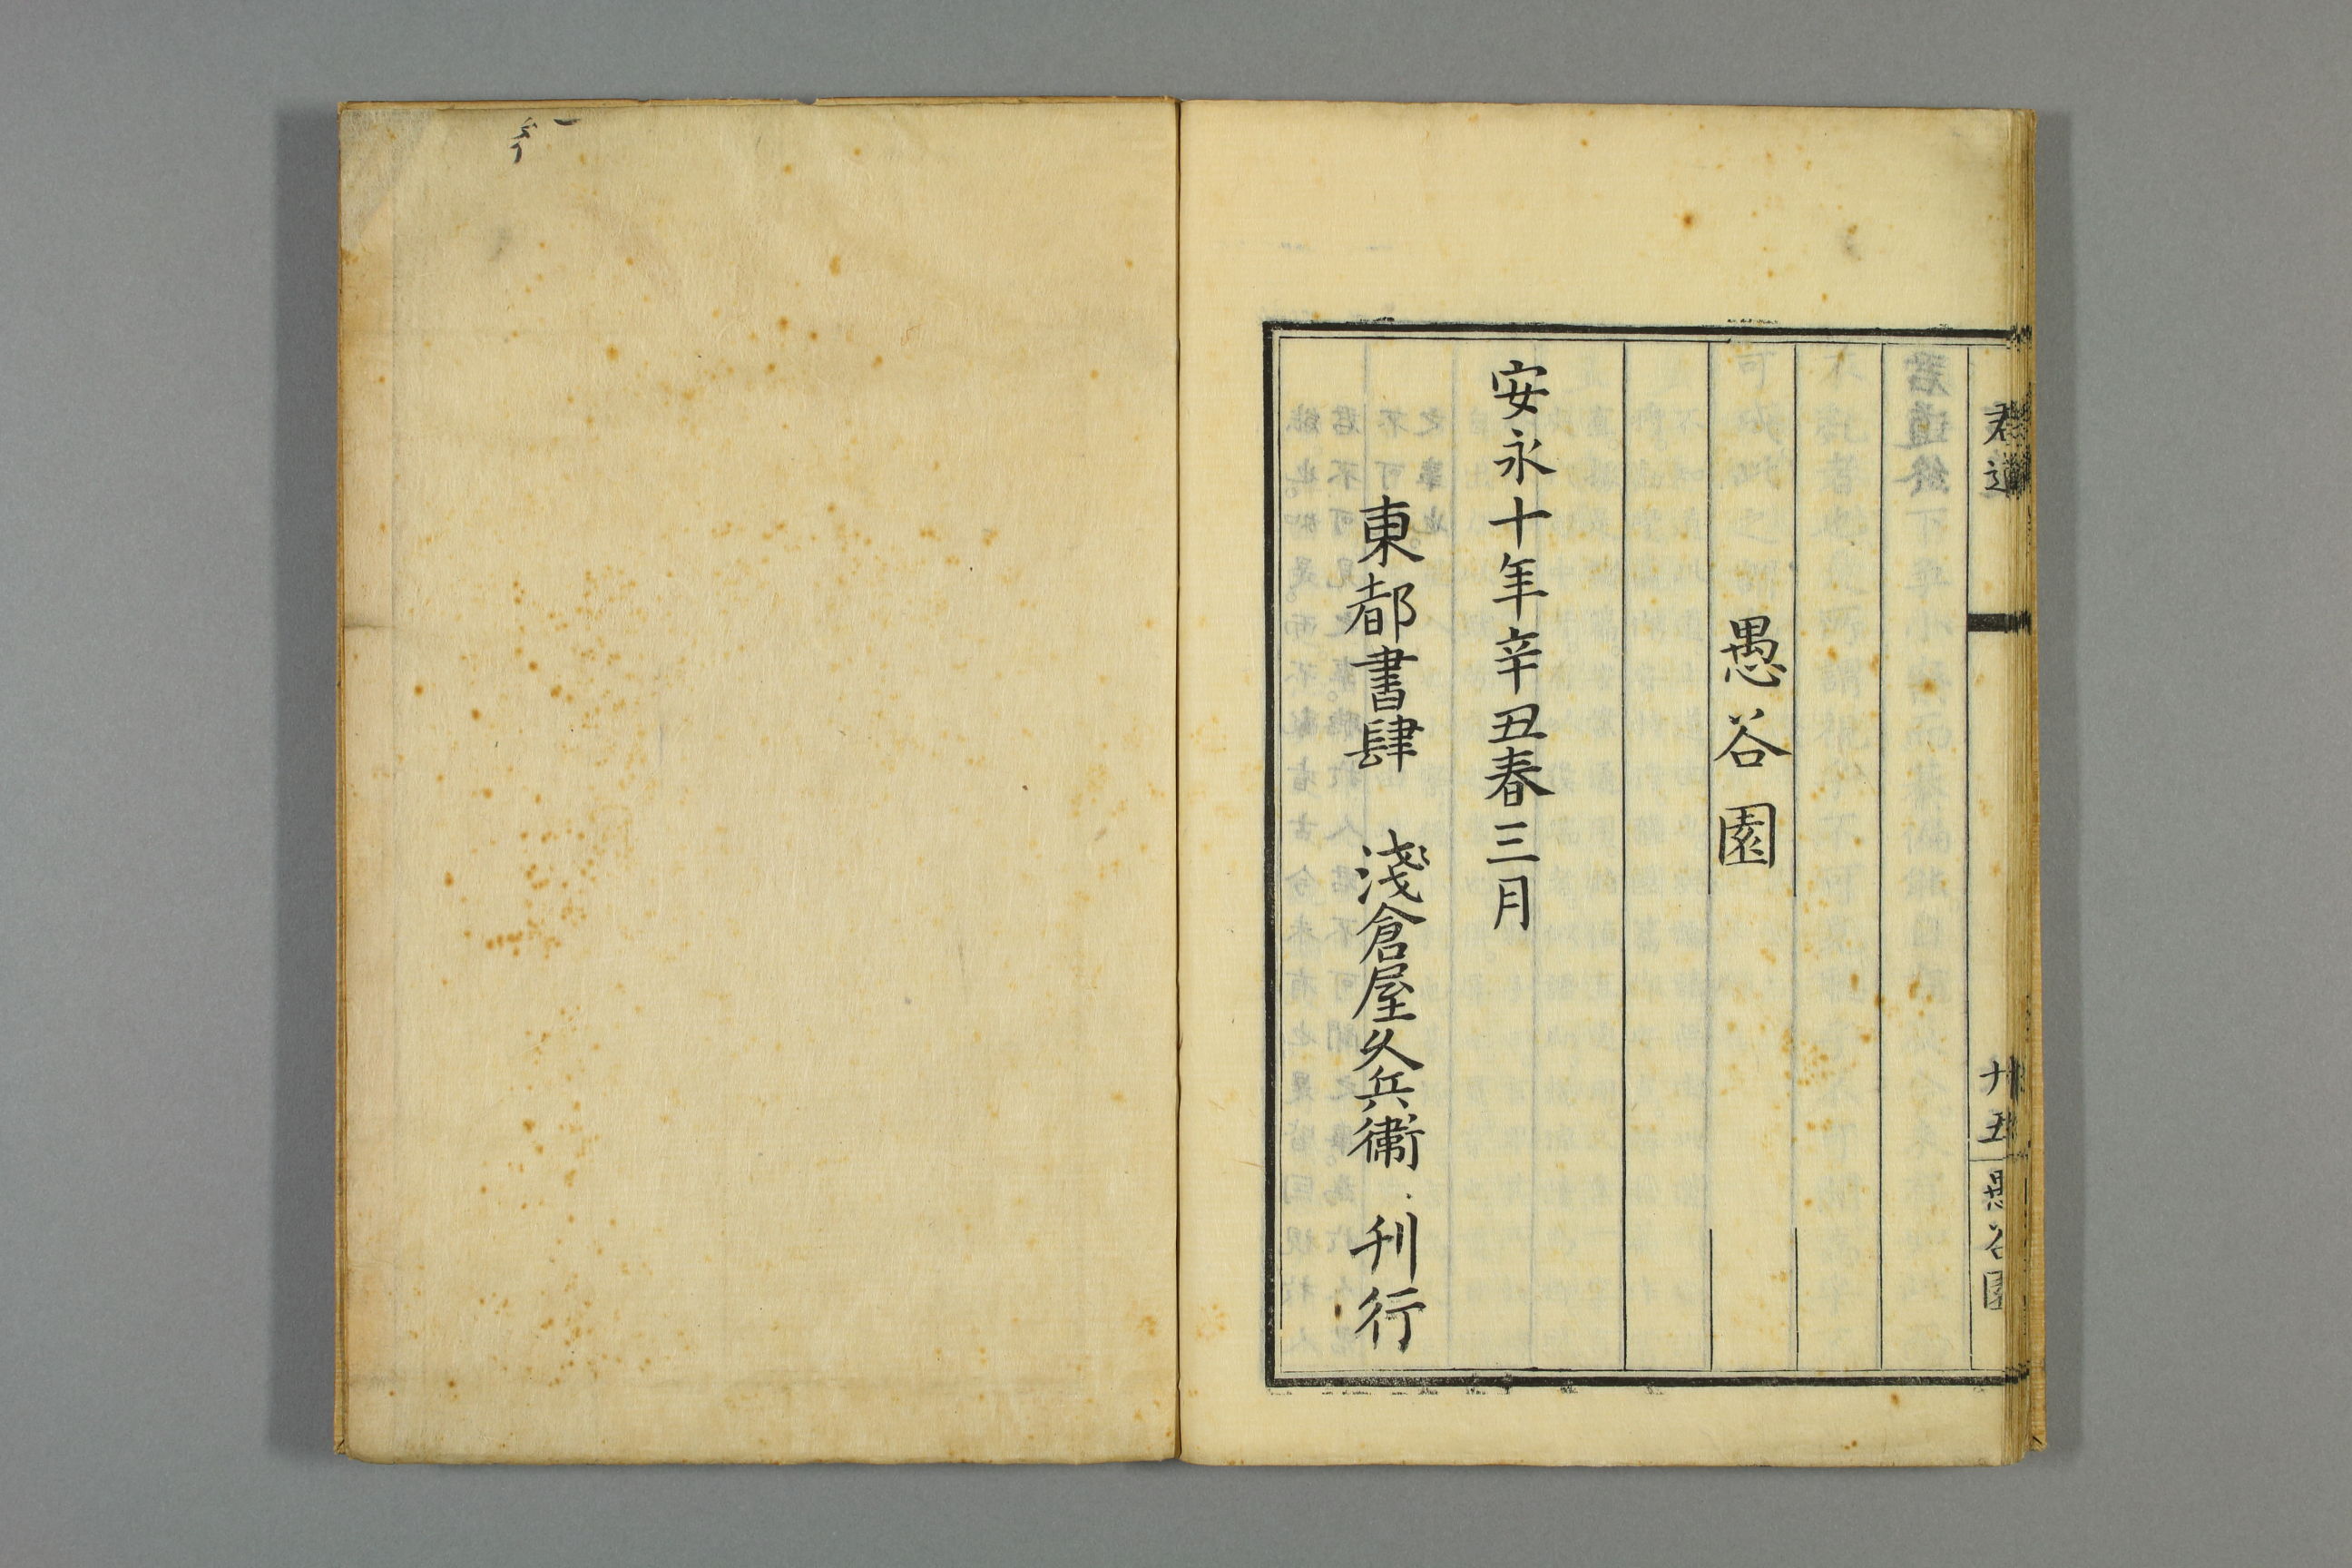 君道
廿五
愚谷園
愚谷園
安永十年辛丑春三月
東都書肆 淺倉屋久兵衞 刊行